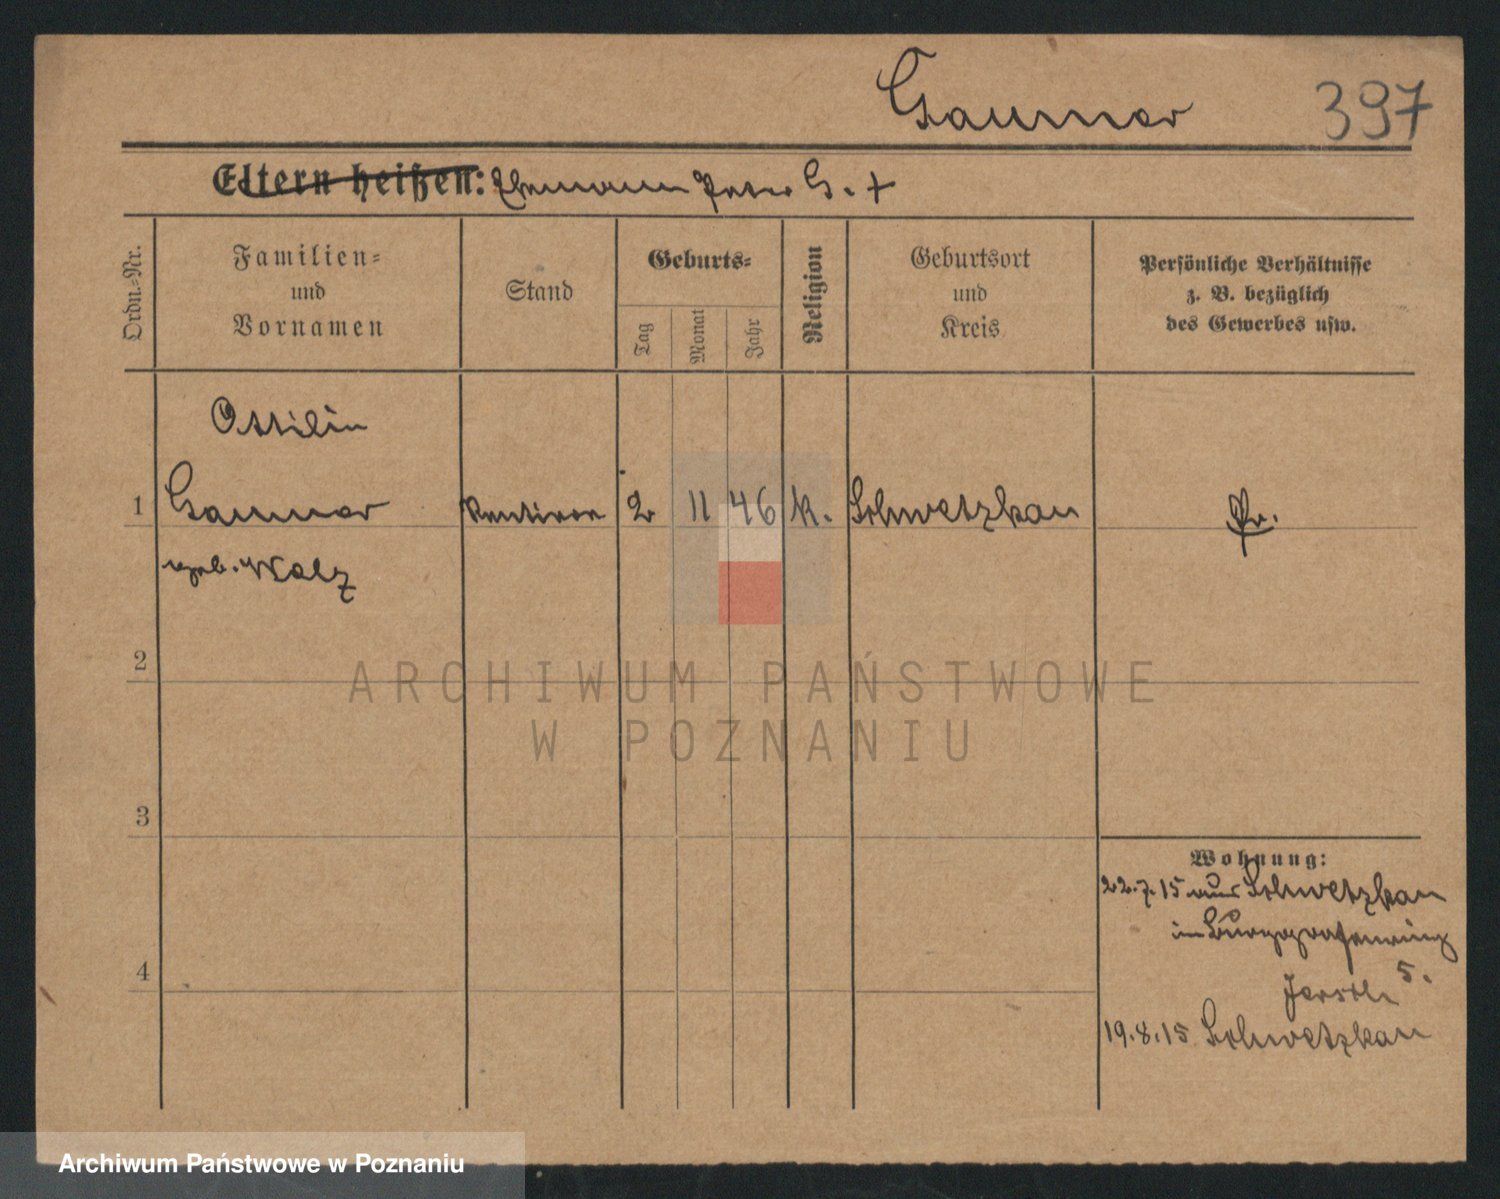 Gaumer 397
Eltern heißen: Ehemann Peter G. +
Ordn.-Nr.
Familien-
und
Vornamen
Stand
Geburts-
Tag
Monat
Jahr
Religion
Geburtsort
und
Kreis
Persönliche Verhältnisse
z. B. bezüglich
des Gewerbes usw.
Ottilie
1 Gaumer Rentiere 2 11 46 k. Schwetzkau Pr.
geb. Walz
2
ARCHIWUM PAŃSTWOWE
W POZNANIU
3
Wohnung:
22.7.15 aus Schwetzkau
im Burggrafenring
4
5.
19.8.15 Schwetzkau
Archiwum Państwowe w Poznaniu